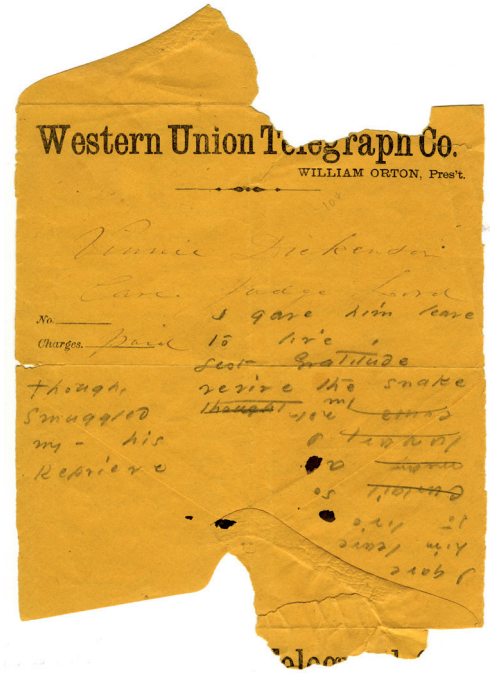 Western Union Telegraph Co.
WILLIAM ORTON, Pres't.
Vinnie Dickenson
Care Judge Lord
No.
Charges. paid
I gave him leave
to live,
Lest Gratitude
revive the snake
thought my
though,
smuggled
my - his
Reprieve
I gave
him leave
to live
so
a